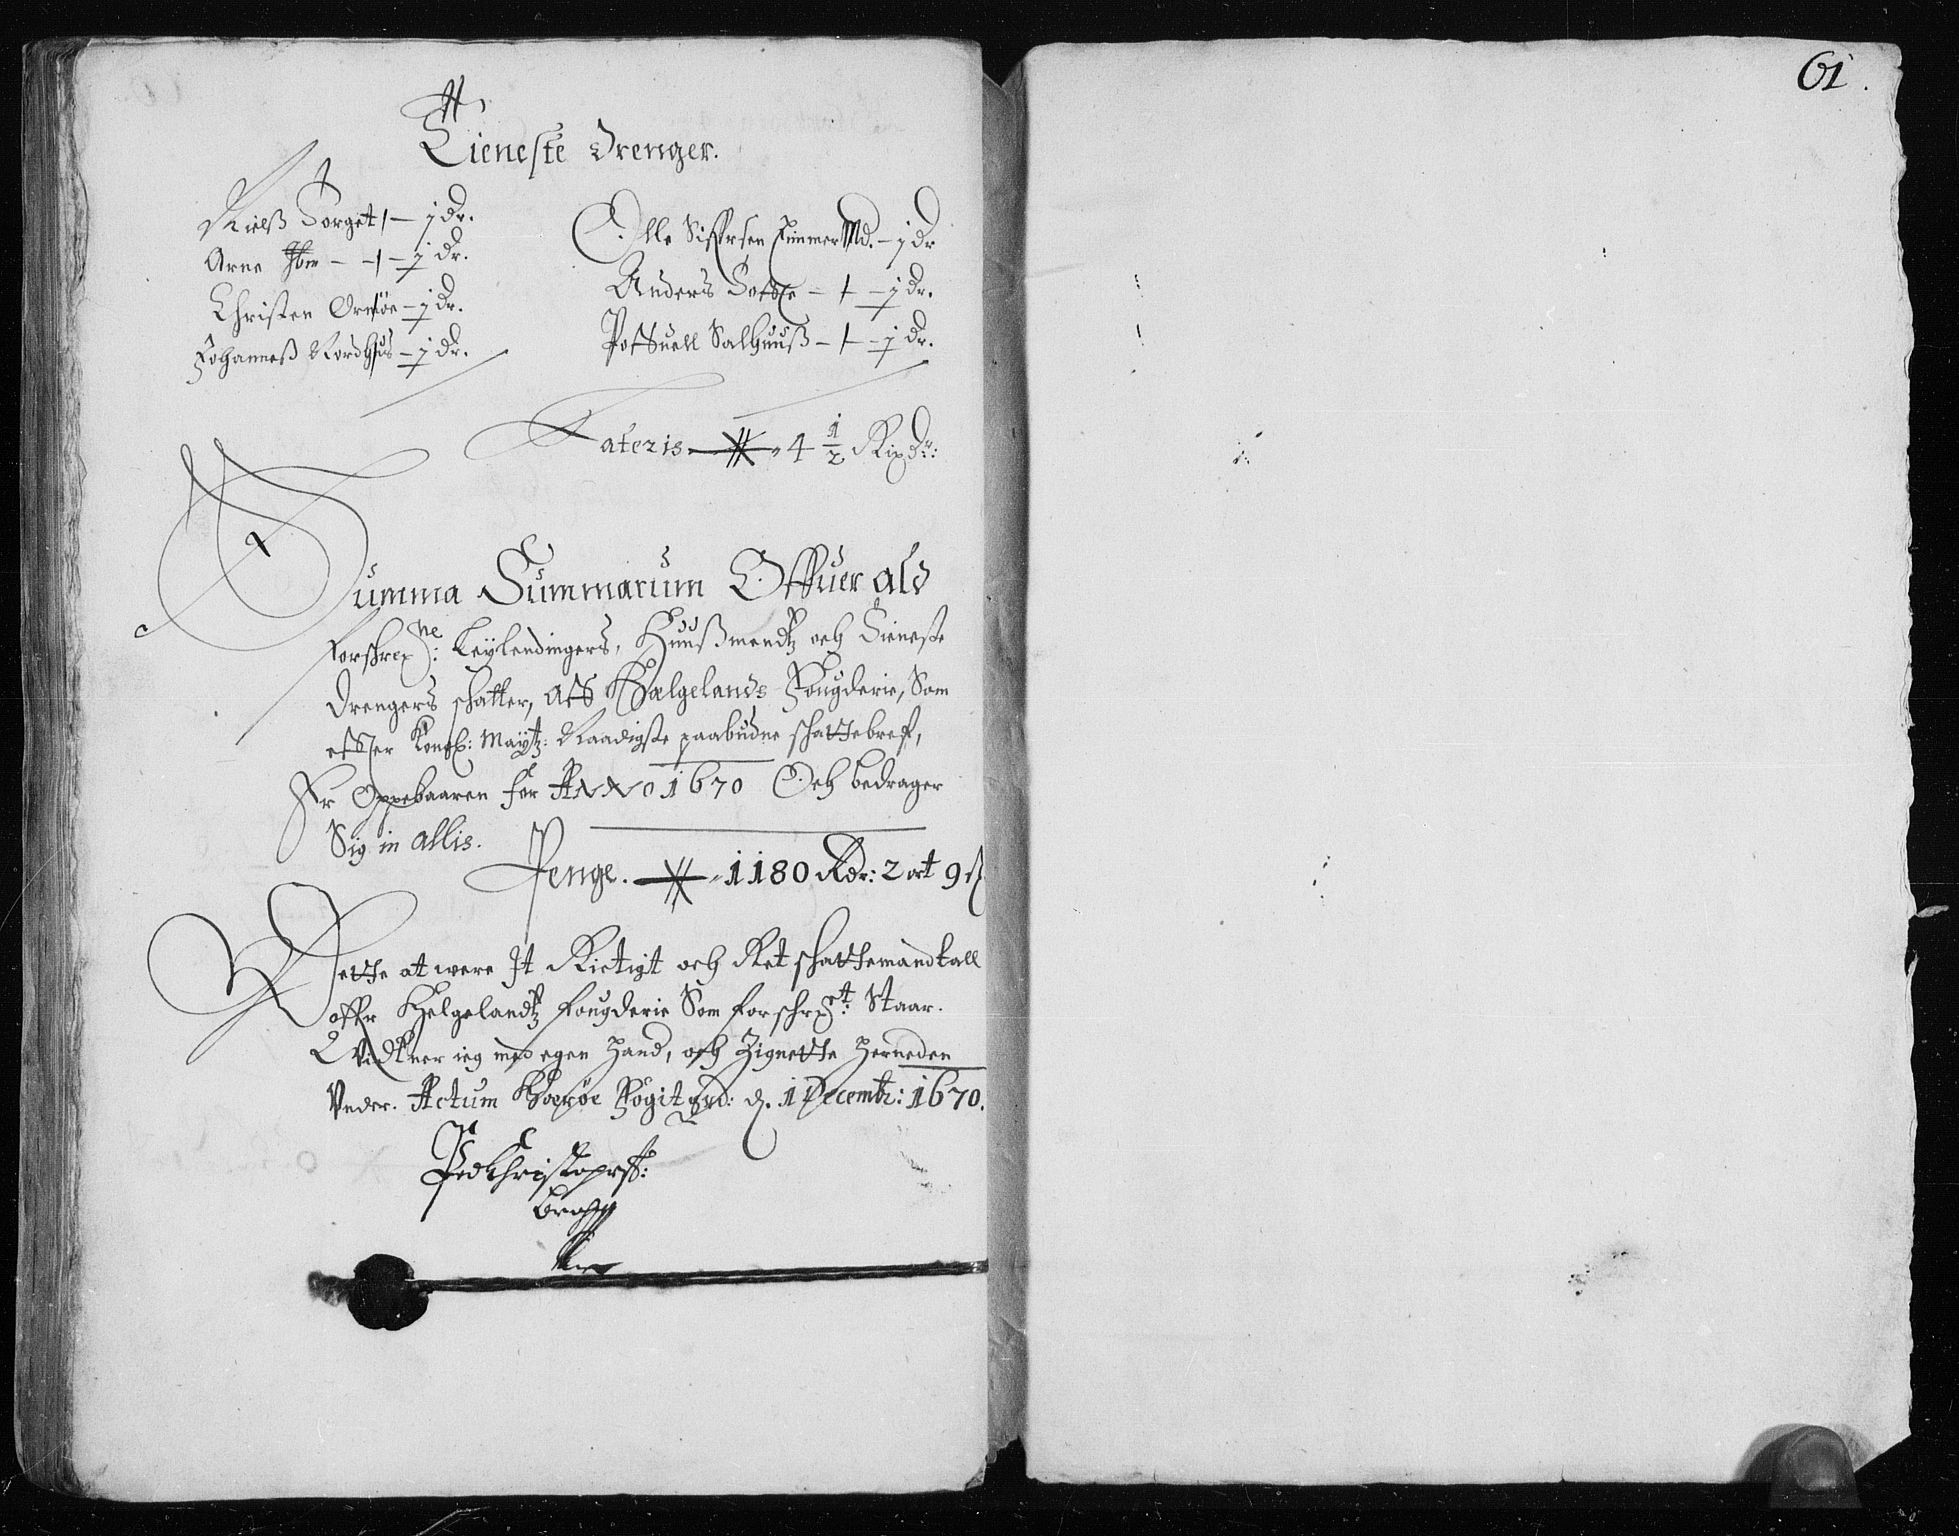 61.
Tieneste Drenger.
Nielß Torget — ½ dr.
Arne Ibm — ½ dr.
Christen Ormøe — ½ dr.
Johanneß Nordhus — ½ dr.
Olle Siffrsen Timmer Md. — ½ dr
Anders — ½ dr.
Salhuuß — ½ dr.
Lateris — 4 1/2 Rixdr:
Summa Summarum Offuer ald
forschrefne: Leylendingers, Huußmendtz och Tieneste
Drengers schatter, aff Helgelands Fougderie, Som
effter Kongl: Maytz: Naadigste paabudne schattebreff,
Er Oppebaaren for ANNO 1670 Och bedrager
Sig in allis.
Penge. — 1180 Rdr: 2 ort 9 ß
Dette at were It Rictigt och Ret schattemandtall
offr Helgelandtz fougderie Som forschrefft: Staar.
Vidkner ieg med egen Hand, och Zignette Herneden
Vnder. Actum Herøe Fogitgrd: d. 1 Decembr: 1670.
Ped Christoprß: